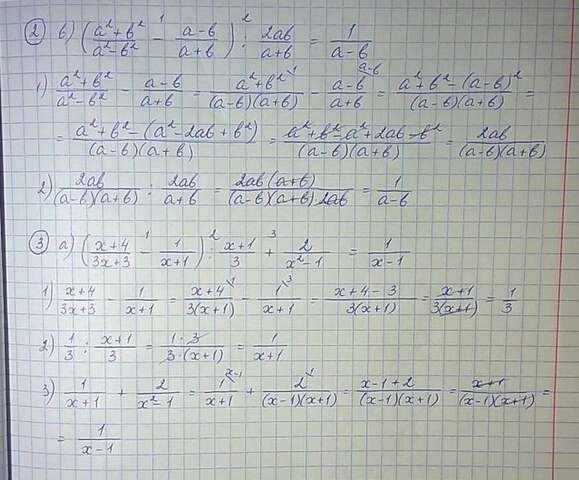 ② б) ((a²+b²)/(a²-b²) - (a-b)/(a+b)) : 2ab/(a+b) = 1/(a-b)
1) (a²+b²)/(a²-b²) - (a-b)/(a+b) = (a²+b²)/((a-b)(a+b)) - (a-b)/(a+b) = (a²+b²-(a-b)²)/((a-b)(a+b)) =
= (a²+b²-(a²-2ab+b²))/((a-b)(a+b)) = (a²+b²-a²+2ab-b²)/((a-b)(a+b)) = 2ab/((a-b)(a+b))
2) 2ab/((a-b)(a+b)) : 2ab/(a+b) = 2ab(a+b)/((a-b)(a+b)2ab) = 1/(a-b)
③ a) ((x+4)/(3x+3) - 1/(x+1)) : (x+1)/3 + 2/(x²-1) = 1/(x-1)
1) (x+4)/(3x+3) - 1/(x+1) = (x+4)/(3(x+1)) - 1/(x+1) = (x+4-3)/(3(x+1)) = (x+1)/(3(x+1)) = 1/3
2) 1/3 : (x+1)/3 = (1·3)/(3·(x+1)) = 1/(x+1)
3) 1/(x+1) + 2/(x²-1) = 1/(x+1) + 2/((x-1)(x+1)) = (x-1+2)/((x-1)(x+1)) = (x+1)/((x-1)(x+1)) =
= 1/(x-1)